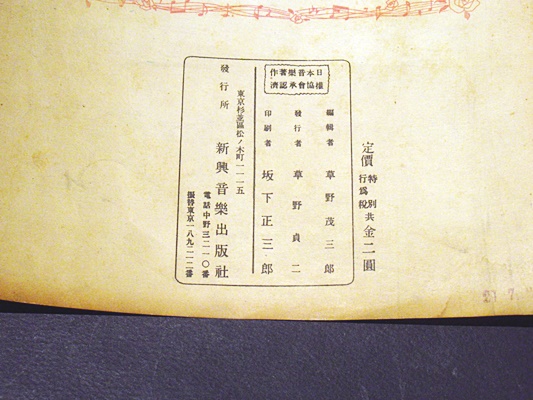 定價 特別行爲稅共 金二圓
日本音樂著作
權協會承認濟
編輯者 草野茂三郎
發行者 草野貞二
印刷者 坂下正三郎
東京杉並區松ノ木町一一一五
發行所 新興音樂出版社
電話中野三二一〇番
振替東京一八九二二番